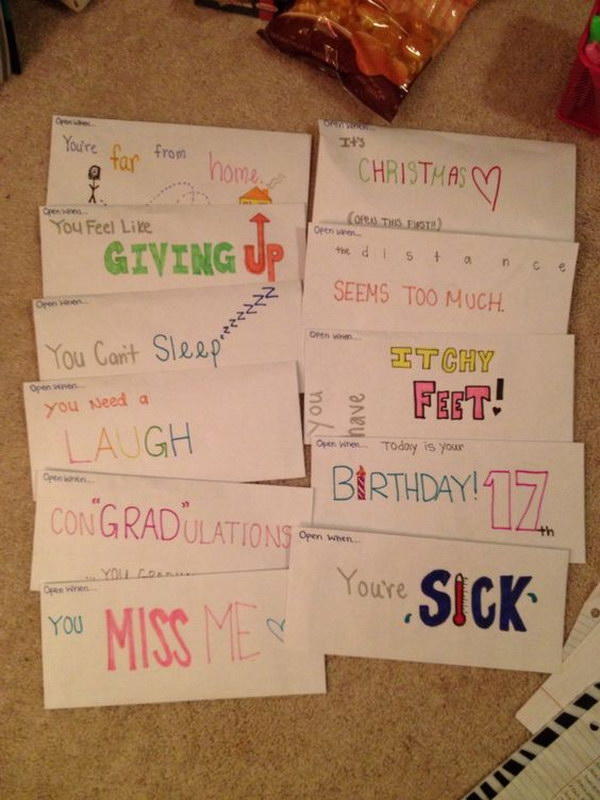 Open When...
You're far from home.
Open When...
You Feel Like
GIVING UP
Open When...
You Can't Sleep zzzzzzz
Open When...
You Need a
LAUGH
Open When...
CON"GRAD"ULATIONS
... YOU
Open When...
YOU MISS ME
Open When...
It's
CHRISTMAS
(OPEN THIS FIRST!!)
Open When...
the distance
SEEMS TOO MUCH.
Open When...
You have
ITCHY
FEET!
Open When...
Today is your
BIRTHDAY! 17th
Open When...
You're SICK